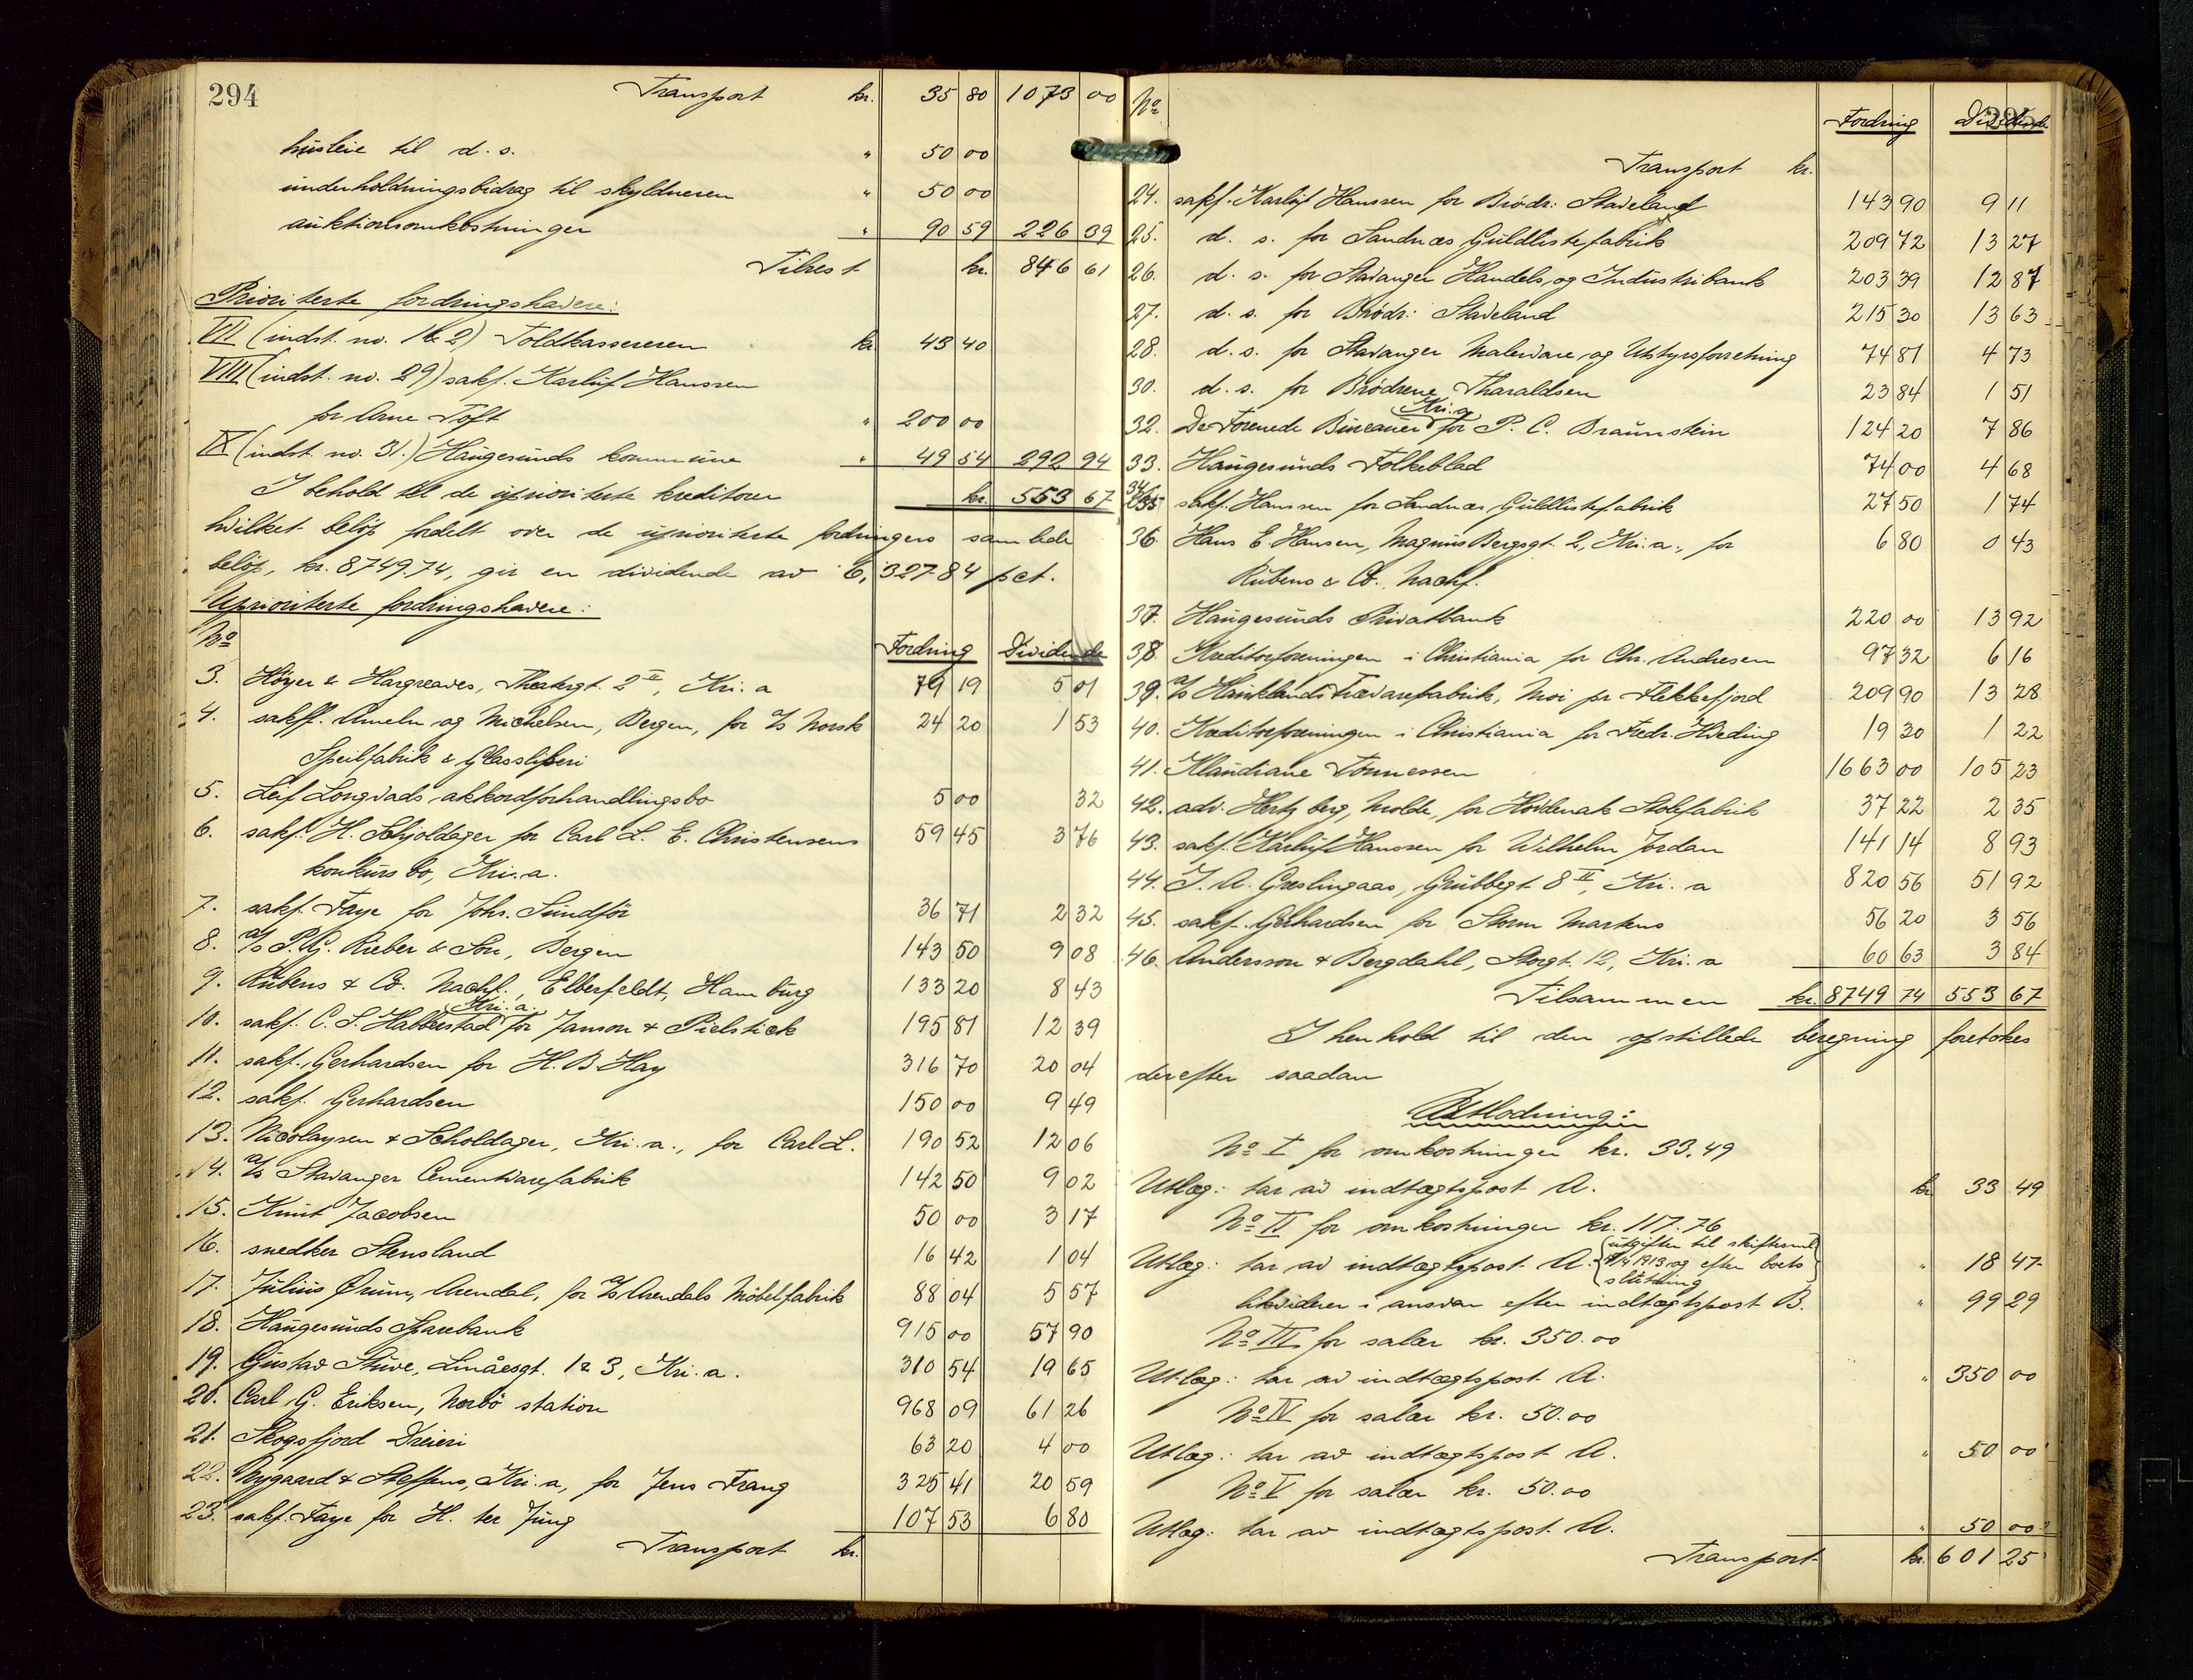 294
Transport kr. 35 80 1073 00
husleie til d. s. " 50 00
underholdningsbidrag til skyldneren " 50 00
auktionsomkostninger " 90 59 226 39
Tilrest kr. 846 61
Prioriterte fordringshavere:
VII (indst. no. 1 & 2) Toldkassereren kr. 43 40
VIII (indst. no. 29) sakf. Karluf Hanssen
for Arne Toft " 200 00
IX (indst. no. 31.) Haugesunds kommune " 49 54 292 94
I behold til de uprioriterte kreditorer kr. 553 67
hvilket beløp fordelt over de uprioriterte fordringers samlede
beløp, kr. 8749.74, gir en dividende av 6,32784 pct.
Uprioriterte fordringshavere:
No Fordring Dividende
3. Höyer & Hargreaves, Theatergt. 2 II, Kri.a 79 19 5 01
4. sakff. Ameln og Michelsen, Bergen, for A/S Norsk 24 20 1 53
Speilfabrik & Glassliperi
5. Leif Longvads akkordforhandlingsbo 5 00 32
6. sakf. H. Schjoldager for Carl L. E. Christensens 59 45 3 76
konkursbo, Kri.a.
7. sakf. Faye for Johs. Sundför 36 71 2 32
8. A/S P. G. Rieber & Søn, Bergen 143 50 9 08
9. Rubens & Co. Nachf., Elberfeldt, Hamburg 133 20 8 43
10. sakf. C. S. Halkestad Kri.a for Janson & Pielstick 195 81 12 39
11. sakf. Gerhardsen for H. B. Hay 316 70 20 04
12. sakf. Gerhardsen 150 00 9 49
13. Nicolaysen & Scholdager, Kri.a., for Carl L. 190 52 12 06
14. A/S Stavanger Cementvarefabrik 142 50 9 02
15. Knut Jacobsen 50 00 3 17
16. snedker Stensland 16 42 1 04
17. Julius Ørum, Arendal, for A/S Arendals Möbelfabrik 88 04 5 57
18. Haugesunds Sparebank 915 00 57 90
19. Gustav Stüve, Småesgt. 1 & 3, Kri.a. 310 54 19 65
20. Carl G. Eriksen, Norbö station 968 09 61 26
21. Skogsfjord Dreieri 63 20 4 00
22. Nygaard & Steffens, Kri.a, for Jens Frang 325 41 20 59
23. sakf. Faye for H. ter Jung 107 53 6 80
Transport kr.
No Fordring Dividende
Transport kr.
24. sakf. Karluf Hanssen for Brödr. Staveland 143 90 9 11
25. d. s. for Sandnes Guldlistefabrik 209 72 13 27
26. d. s. for Stavanger Handels og Industribank 203 39 12 87
27. d. s. for Brödr. Staveland 215 30 13 63
28. d. s. for Stavanger Malervare og Utstyrsforretning 74 81 4 73
30. d. s. for Brödrene Tharaldsen 23 84 1 51
32. De Forenede Bureauer Kri.a for P. C. Braunstein 124 20 7 86
33. Haugesunds Folkeblad 74 00 4 68
34 & 35 sakf. Hanssen for Sandnes Guldlistefabrik 27 50 1 74
36. Hans E. Hansen, Magnus Bergsgt. 2, Kri.a., for 6 80 0 43
Rubens & Co. Nachf.
37. Haugesunds Privatbank 220 00 13 92
38. Kreditorforeningen i Christiania for Chr. Andresen 97 32 6 16
39. A/S Hauklands Trævarefabrik, Moi pr Flekkefjord 209 90 13 28
40. Kreditorforeningen i Christiania for Fredr. Hveding 19 30 1 22
41. Klaudiane Tönnessen 1663 00 105 23
42. adv. Hertzberg, Molde, for Hovdenak Stolefabrik 37 22 2 35
43. sakf. Karluf Hanssen for Wilhelm Jordan 141 14 8 93
44. J. A. Greslingaas, Grubbegt. 8 II, Kri.a 820 56 51 92
45. sakf. Gerhardsen for Storm Martens 56 20 3 56
46. Andersson & Bergdahl, Storgt. 12, Kri.a 60 63 3 84
Tilsammen kr. 8749 74 553 67
I henhold til den opstillede beregning foretokes
derefter saadan
Utlodning:
No I for omkostninger kr. 33.49
Utlæg: tar av indtægtspost A. kr. 33 49
No II for omkostninger kr. 117.76
Utlæg: tar av indtægtspost A. (utgifter til skiftesaml. 4/4 1913 og efter boets slutning) " 18 47
likviderer i ansvar efter indtægtspost B. " 99 29
No III for salær kr. 350.00
Utlæg: tar av indtægtspost A. " 350 00
No IV for salær kr. 50.00
Utlæg: tar av indtægtspost A. " 50 00
No V for salær kr. 50.00
Utlæg: tar av indtægtspost A. " 50 00
Transport kr. 601 25